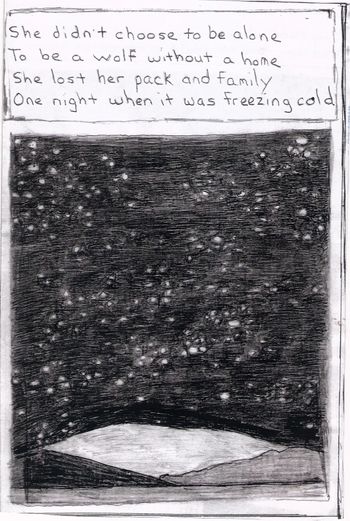 She didn't choose to be alone
To be a wolf without a home
She lost her pack and family
One night when it was freezing cold